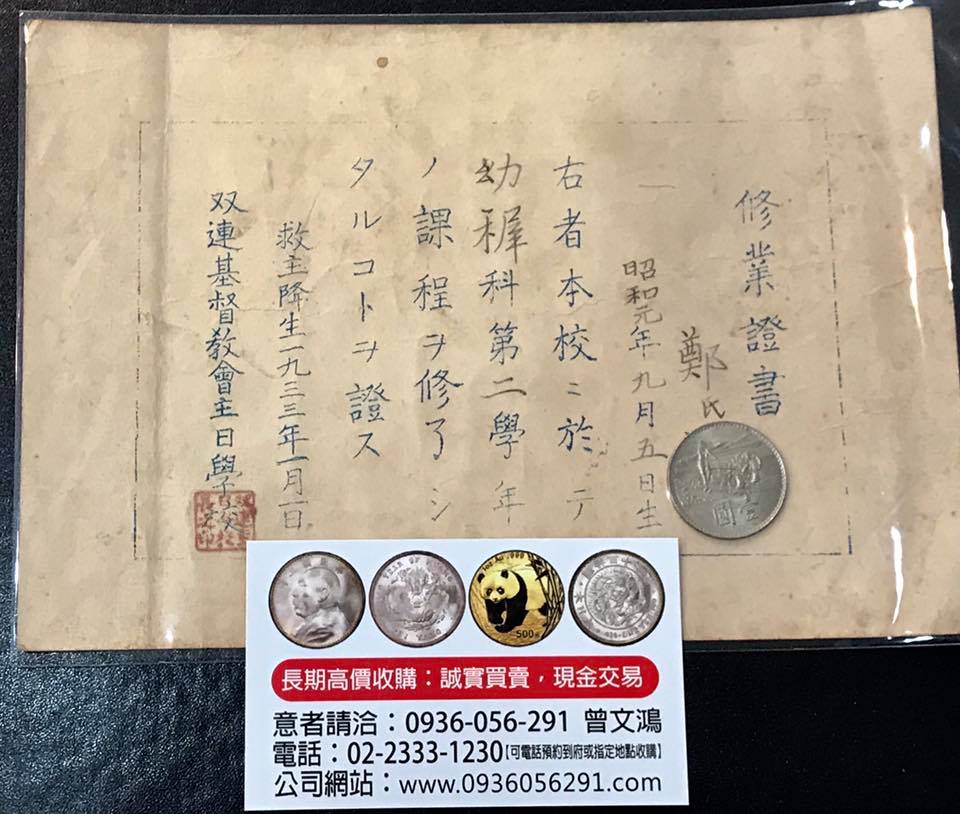 修業證書
鄭氏
昭和元年九月五日生
右者本校ニ於テ
幼稺科第二學年
ノ課程ヲ修了シ
タルコトヲ證ス
救主降生一九三三年一月一日
双連基督敎會主日學校
壹圓
500元
長期高價收購：誠實買賣，現金交易
意者請洽：0936-056-291 曾文鴻
電話：02-2333-1230【可電話預約到府或指定地點收購】
公司網站：www.0936056291.com